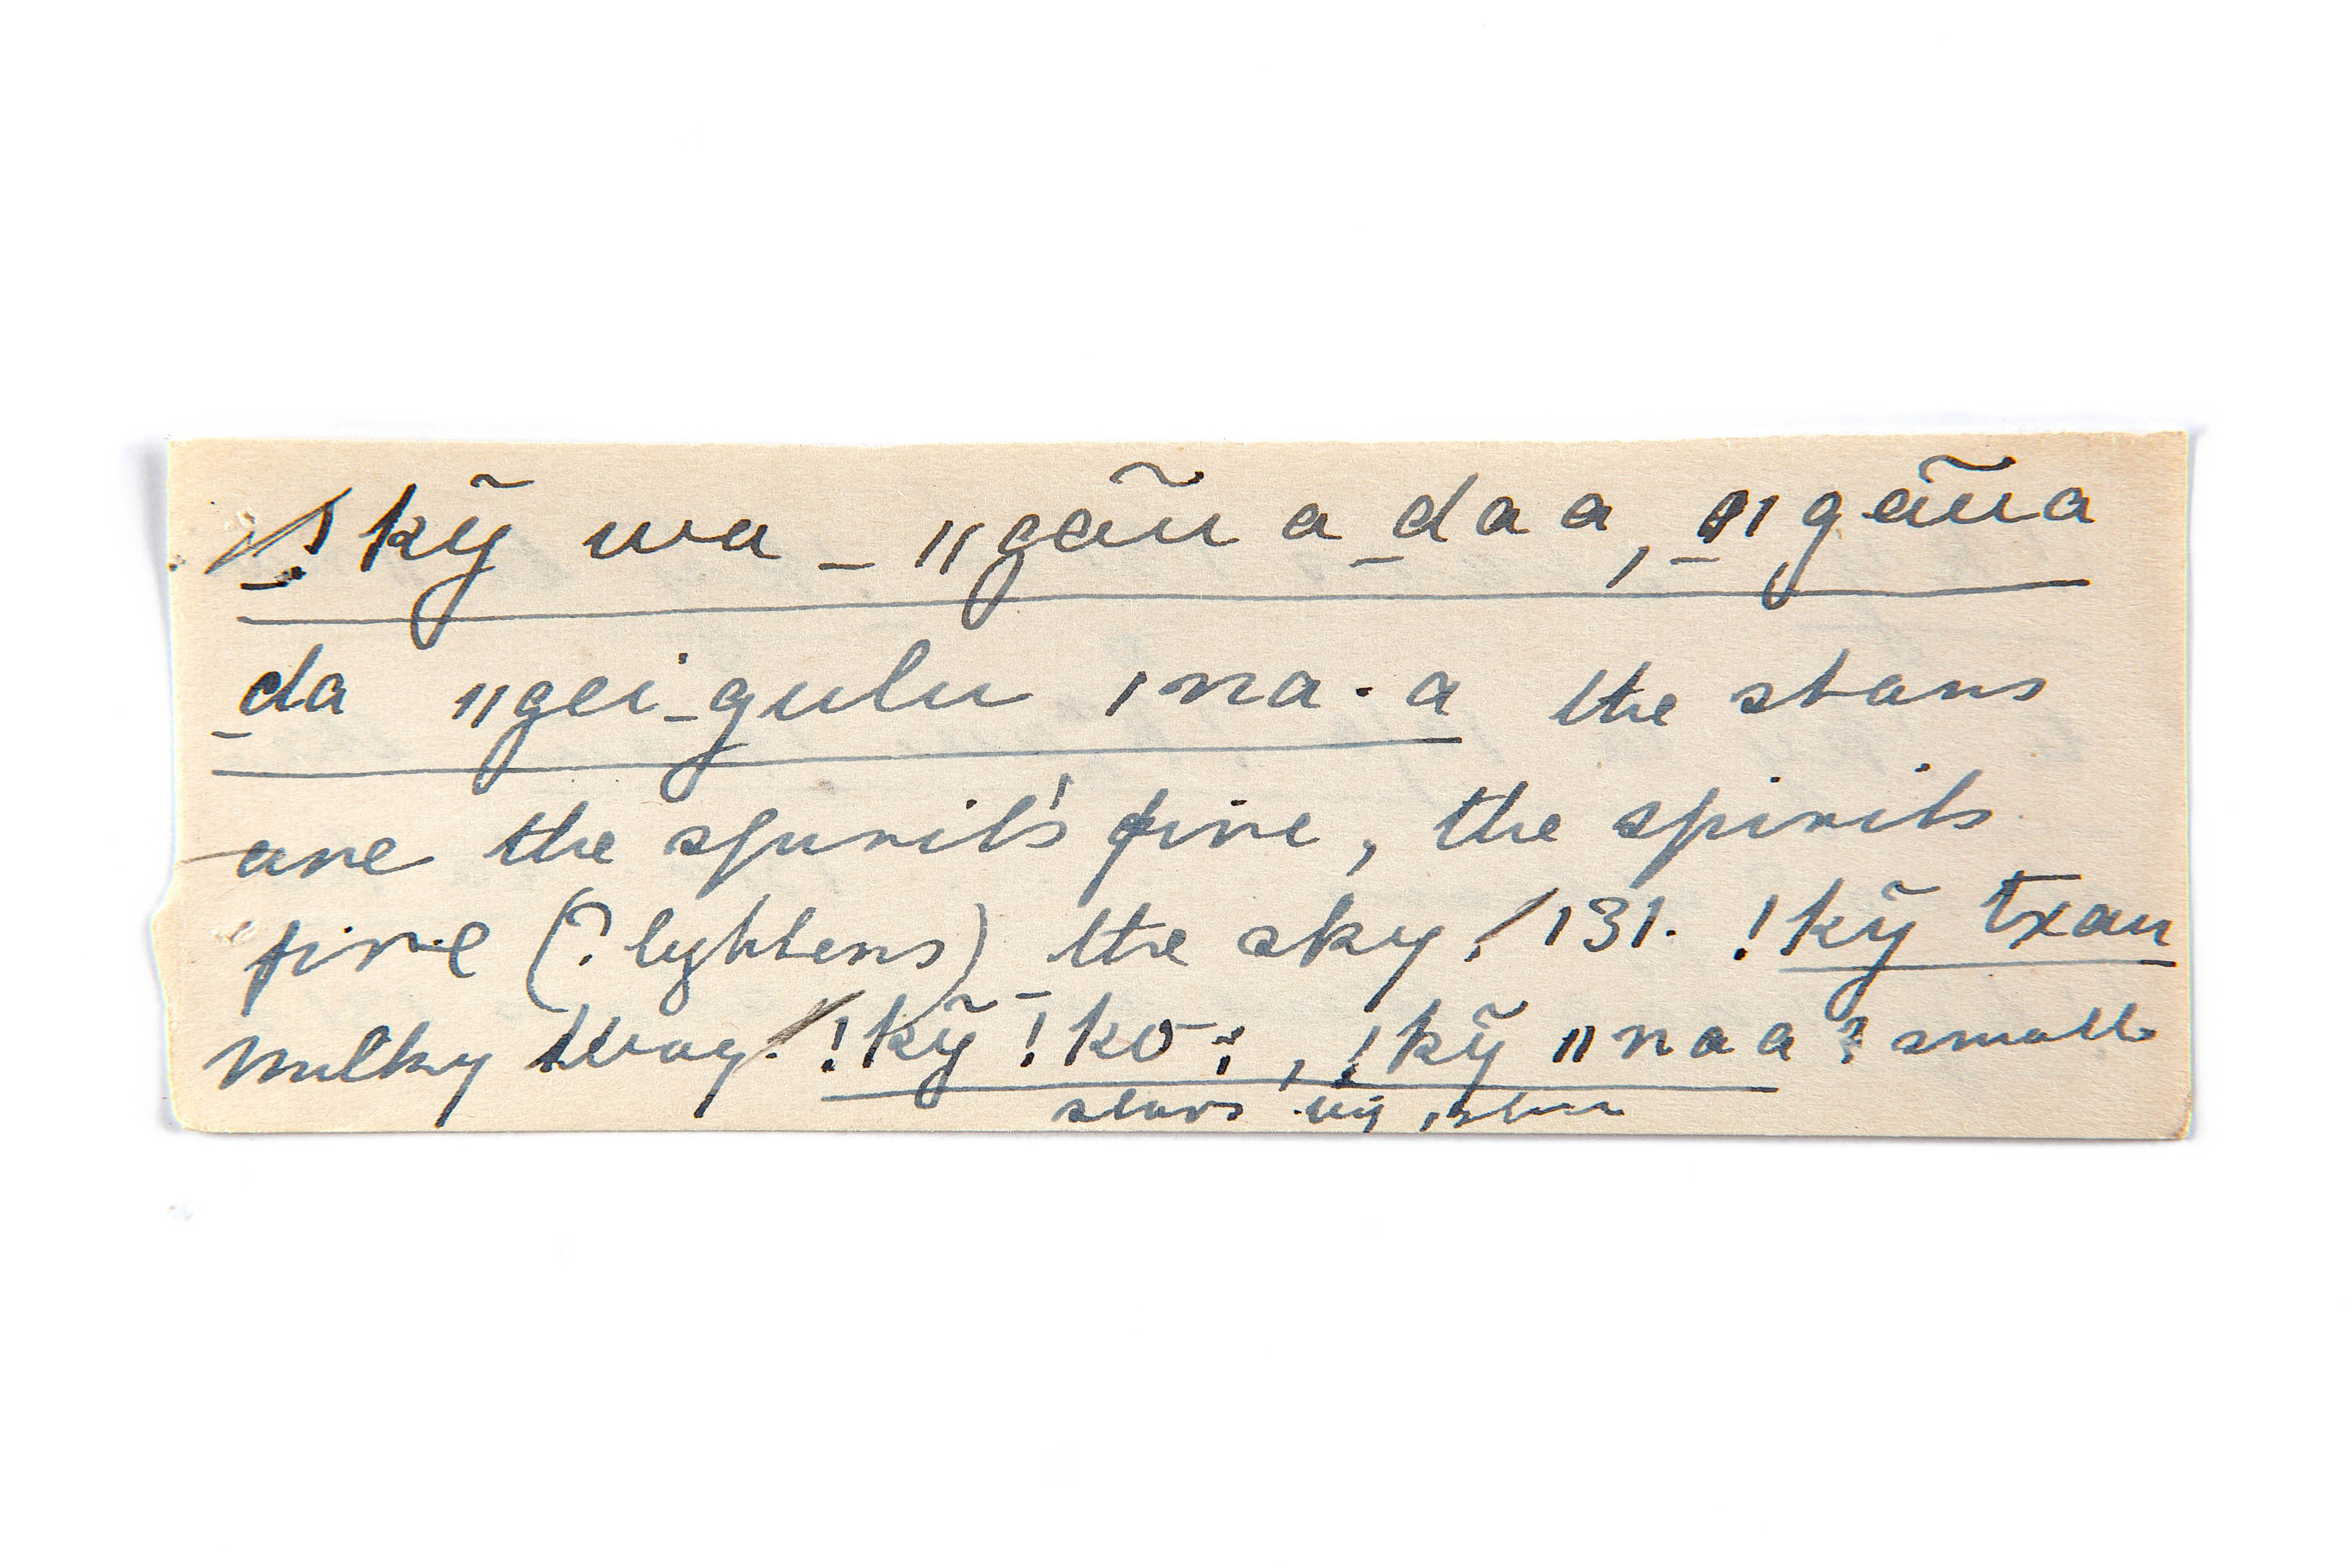 !kỹ wa _ ǁgãũ a _daa, _ǁgãũa
_da ǁgei-gulu ǀna·a the stars
are the spirit's fire, the spirits
fire (? lightens) the sky. / 131. !kỹ txau
milky Way. / !kỹ !ko-; , !kỹ ǁnaa ? small
stars